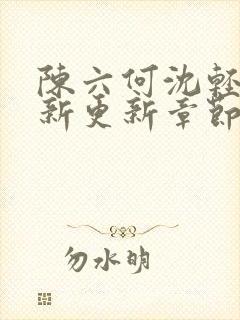 陳六何沈輕
新更新章節
勿水明